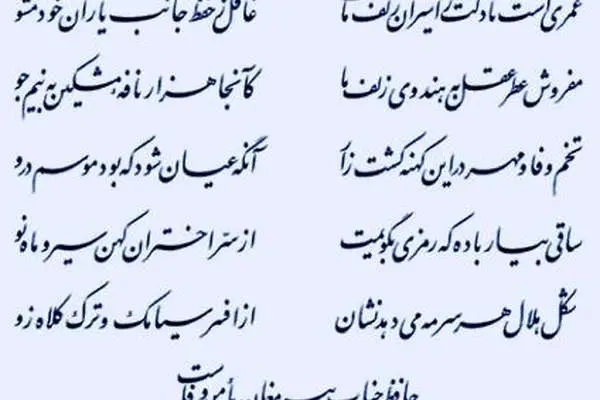 عمری است تا دلت ز اسیران زلف ماست غافل ز حفظ جانب یاران خود مشو
مفروش عطر عقل به هندوی زلف ما کآنجا هزار نافه مشکین به نیم جو
تخم وفا و مهر در این کهنه کشت زار آنگه عیان شود که بود موسم درو
ساقی بیار باده که رمزی بگویمت از سرّ اختران کهن سیر و ماه نو
شکل هلال هر سر مه می دهد نشان از افسر سیامک و ترک کلاه زو
حافظ جناب پیر مغان مأمن وفاست